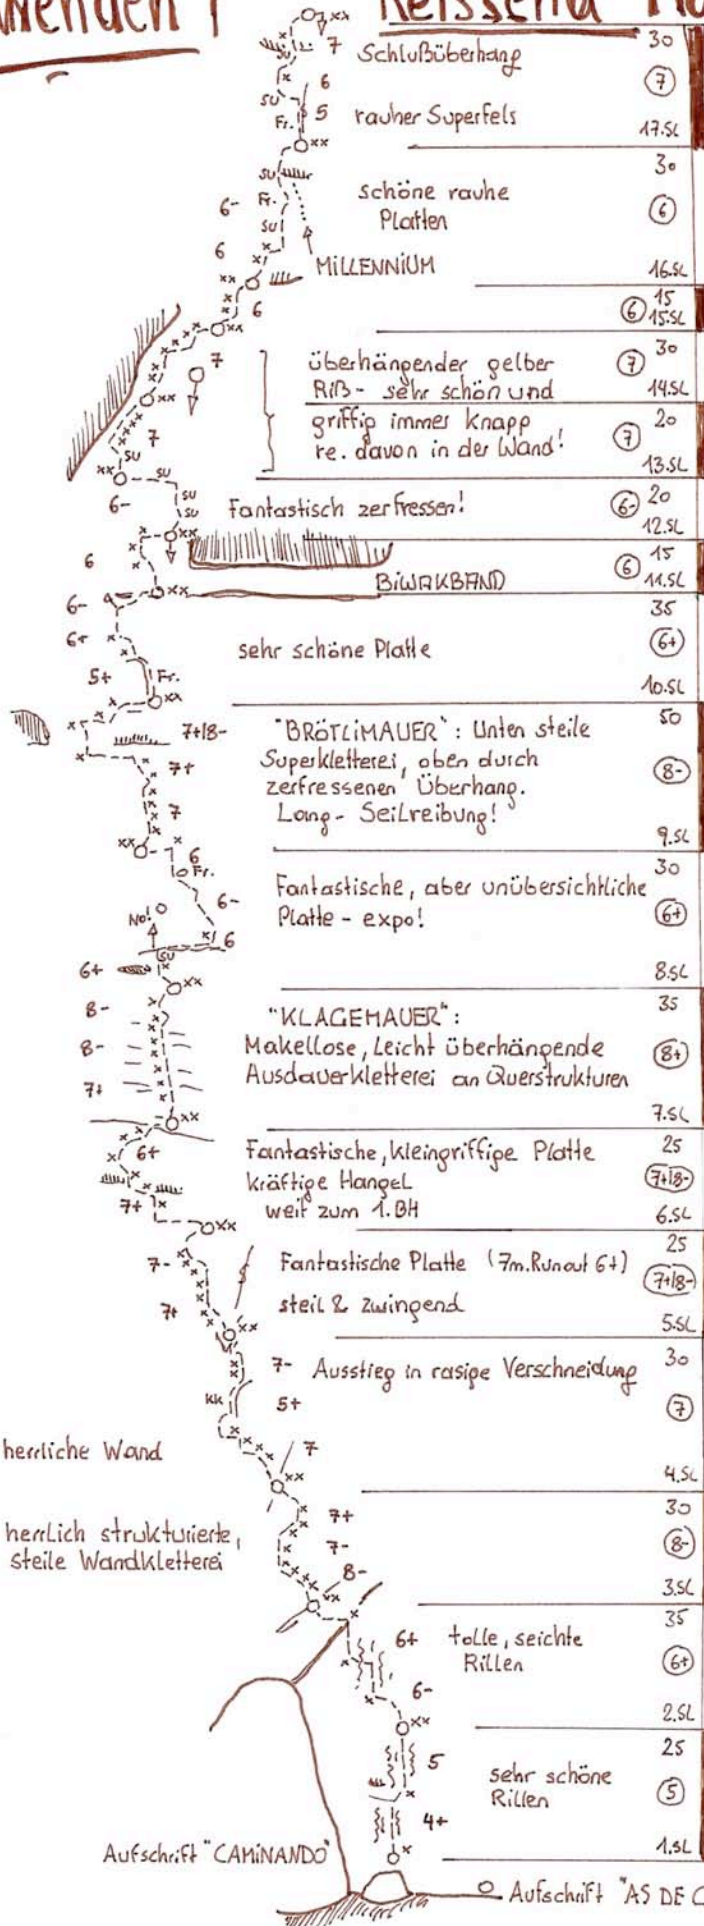 30
7
Schlußüberhang
7
6
SU
5
Fr.
rauher Superfels
17.SL
30
SU
6-
Fr.
schöne rauhe
Platten
6
SU
6
MILLENNIUM
16.SL
6
6
15
15.SL
7
überhängender gelber
Riß - sehr schön und
7
30
14.SL
7
griffig immer knapp
re. davon in der Wand!
7
20
13.SL
SU
SU
6-
SU
SU
Fantastisch zerfressen!
6-
20
12.SL
6
BIWAKBAND
6
15
11.SL
6-
35
6+
sehr schöne Platte
6+
5+
Fr.
10.SL
50
7+/8-
"BRÖTLIMAUER": Unten steile
Superkletterei, oben durch
zerfressenen Überhang.
Lang - Seilreibung!
8-
7+
7
9.SL
6
Fr.
30
Fantastische, aber unübersichtliche
Platte - expo!
6-
6+
No!
6
SU
6+
8.SL
35
8-
"KLAGEMAUER":
Makellose, Leicht überhängende
Ausdauerkletterei an Querstrukturen
8+
8-
7+
7.SL
25
6+
Fantastische, kleingriffige Platte
kräftige Hangel
weit zum 1.BH
7+/8-
7+
6.SL
25
7-
Fantastische Platte (7m.Runout 6+)
steil & zwingend
7+/8-
7+
5.SL
30
7-
Ausstieg in rasige Verschneidung
KK
5+
7
herrliche Wand
7
4.SL
30
7+
herrlich strukturierte,
steile Wandkletterei
7-
8-
8-
3.SL
35
6+
tolle, seichte
Rillen
6+
6-
2.SL
25
5
sehr schöne
Rillen
5
4+
1.SL
Aufschrift "CAMINANDO"
Aufschrift "AS DE